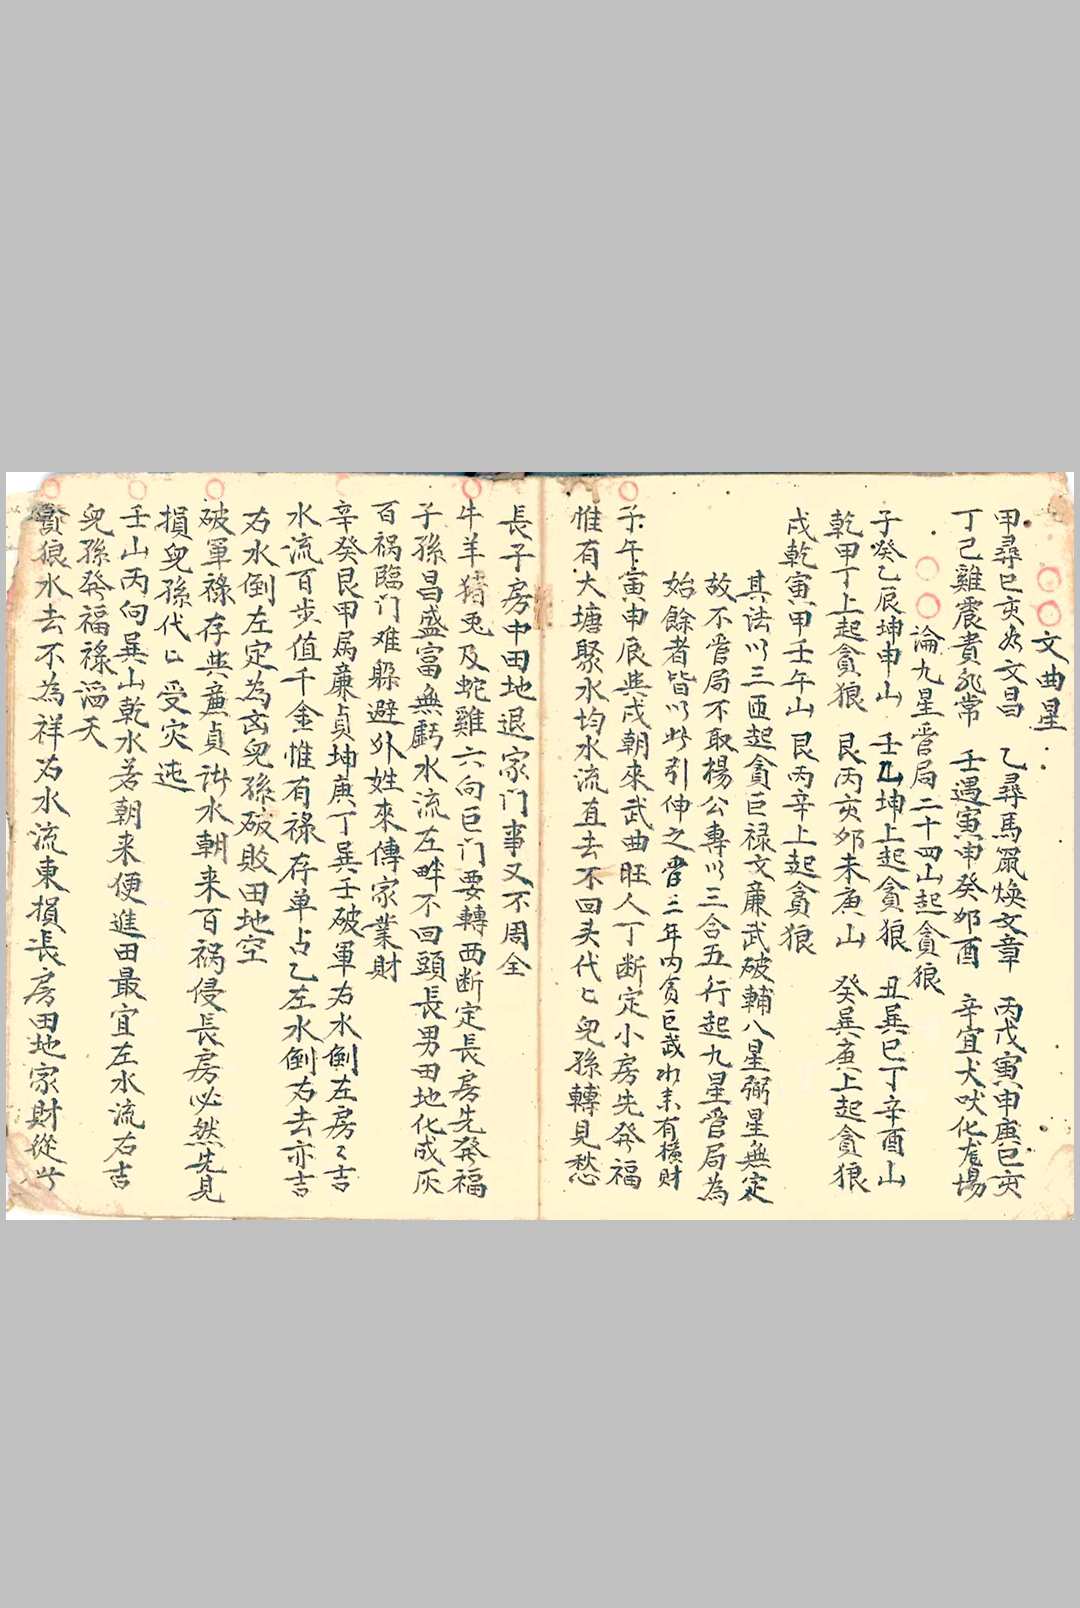 文曲星
甲尋巳亥為文昌 乙尋馬鼠煥文章 丙戊寅申庚巳亥
丁己雞震貴非常 壬遇寅申癸卯酉 辛宜犬吠化龍場
論九星管局二十四山起貪狼
子癸乙辰坤申山 壬乙坤上起貪狼 丑巽巳丁辛酉山
乾甲丁上起貪狼 艮丙亥卯未庚山 癸巽庚上起貪狼
戌乾寅甲壬午山 艮丙辛上起貪狼
其法以三匝起貪巨禄文廉武破輔八星弼星無定
故不管局不取楊公專以三合五行起九星管局為
始餘者皆以此引伸之當三年内貪巨武水来有橫財
子午寅申辰與戌朝來武曲旺人丁断定小房先發福
惟有大塘聚水均水流直去不回头代匕兒孫轉見愁
長子房中田地退家门事又不周全
牛羊猪兎及蛇雞六向巨门要轉西断定長房先發福
子孫昌盛富無虧水流左畔不回頭長男田地化成灰
百祸臨门难躲避外姓來傳家業財
辛癸艮甲属廉貞坤庚丁巽壬破軍右水倒左房匕吉
水流百步值千金惟有禄存单占乙左水倒右去亦吉
右水倒左定為凶兒孫破敗田地空
破軍祿存與廉貞諸水朝来百祸侵長房必然先見
損兒孫代匕受灾迍
壬山丙向巽山乾水若朝来便進田最宜左水流右吉
兒孫發福祿滔天
貪狼水去不為祥右水流東損長房田地家財從此